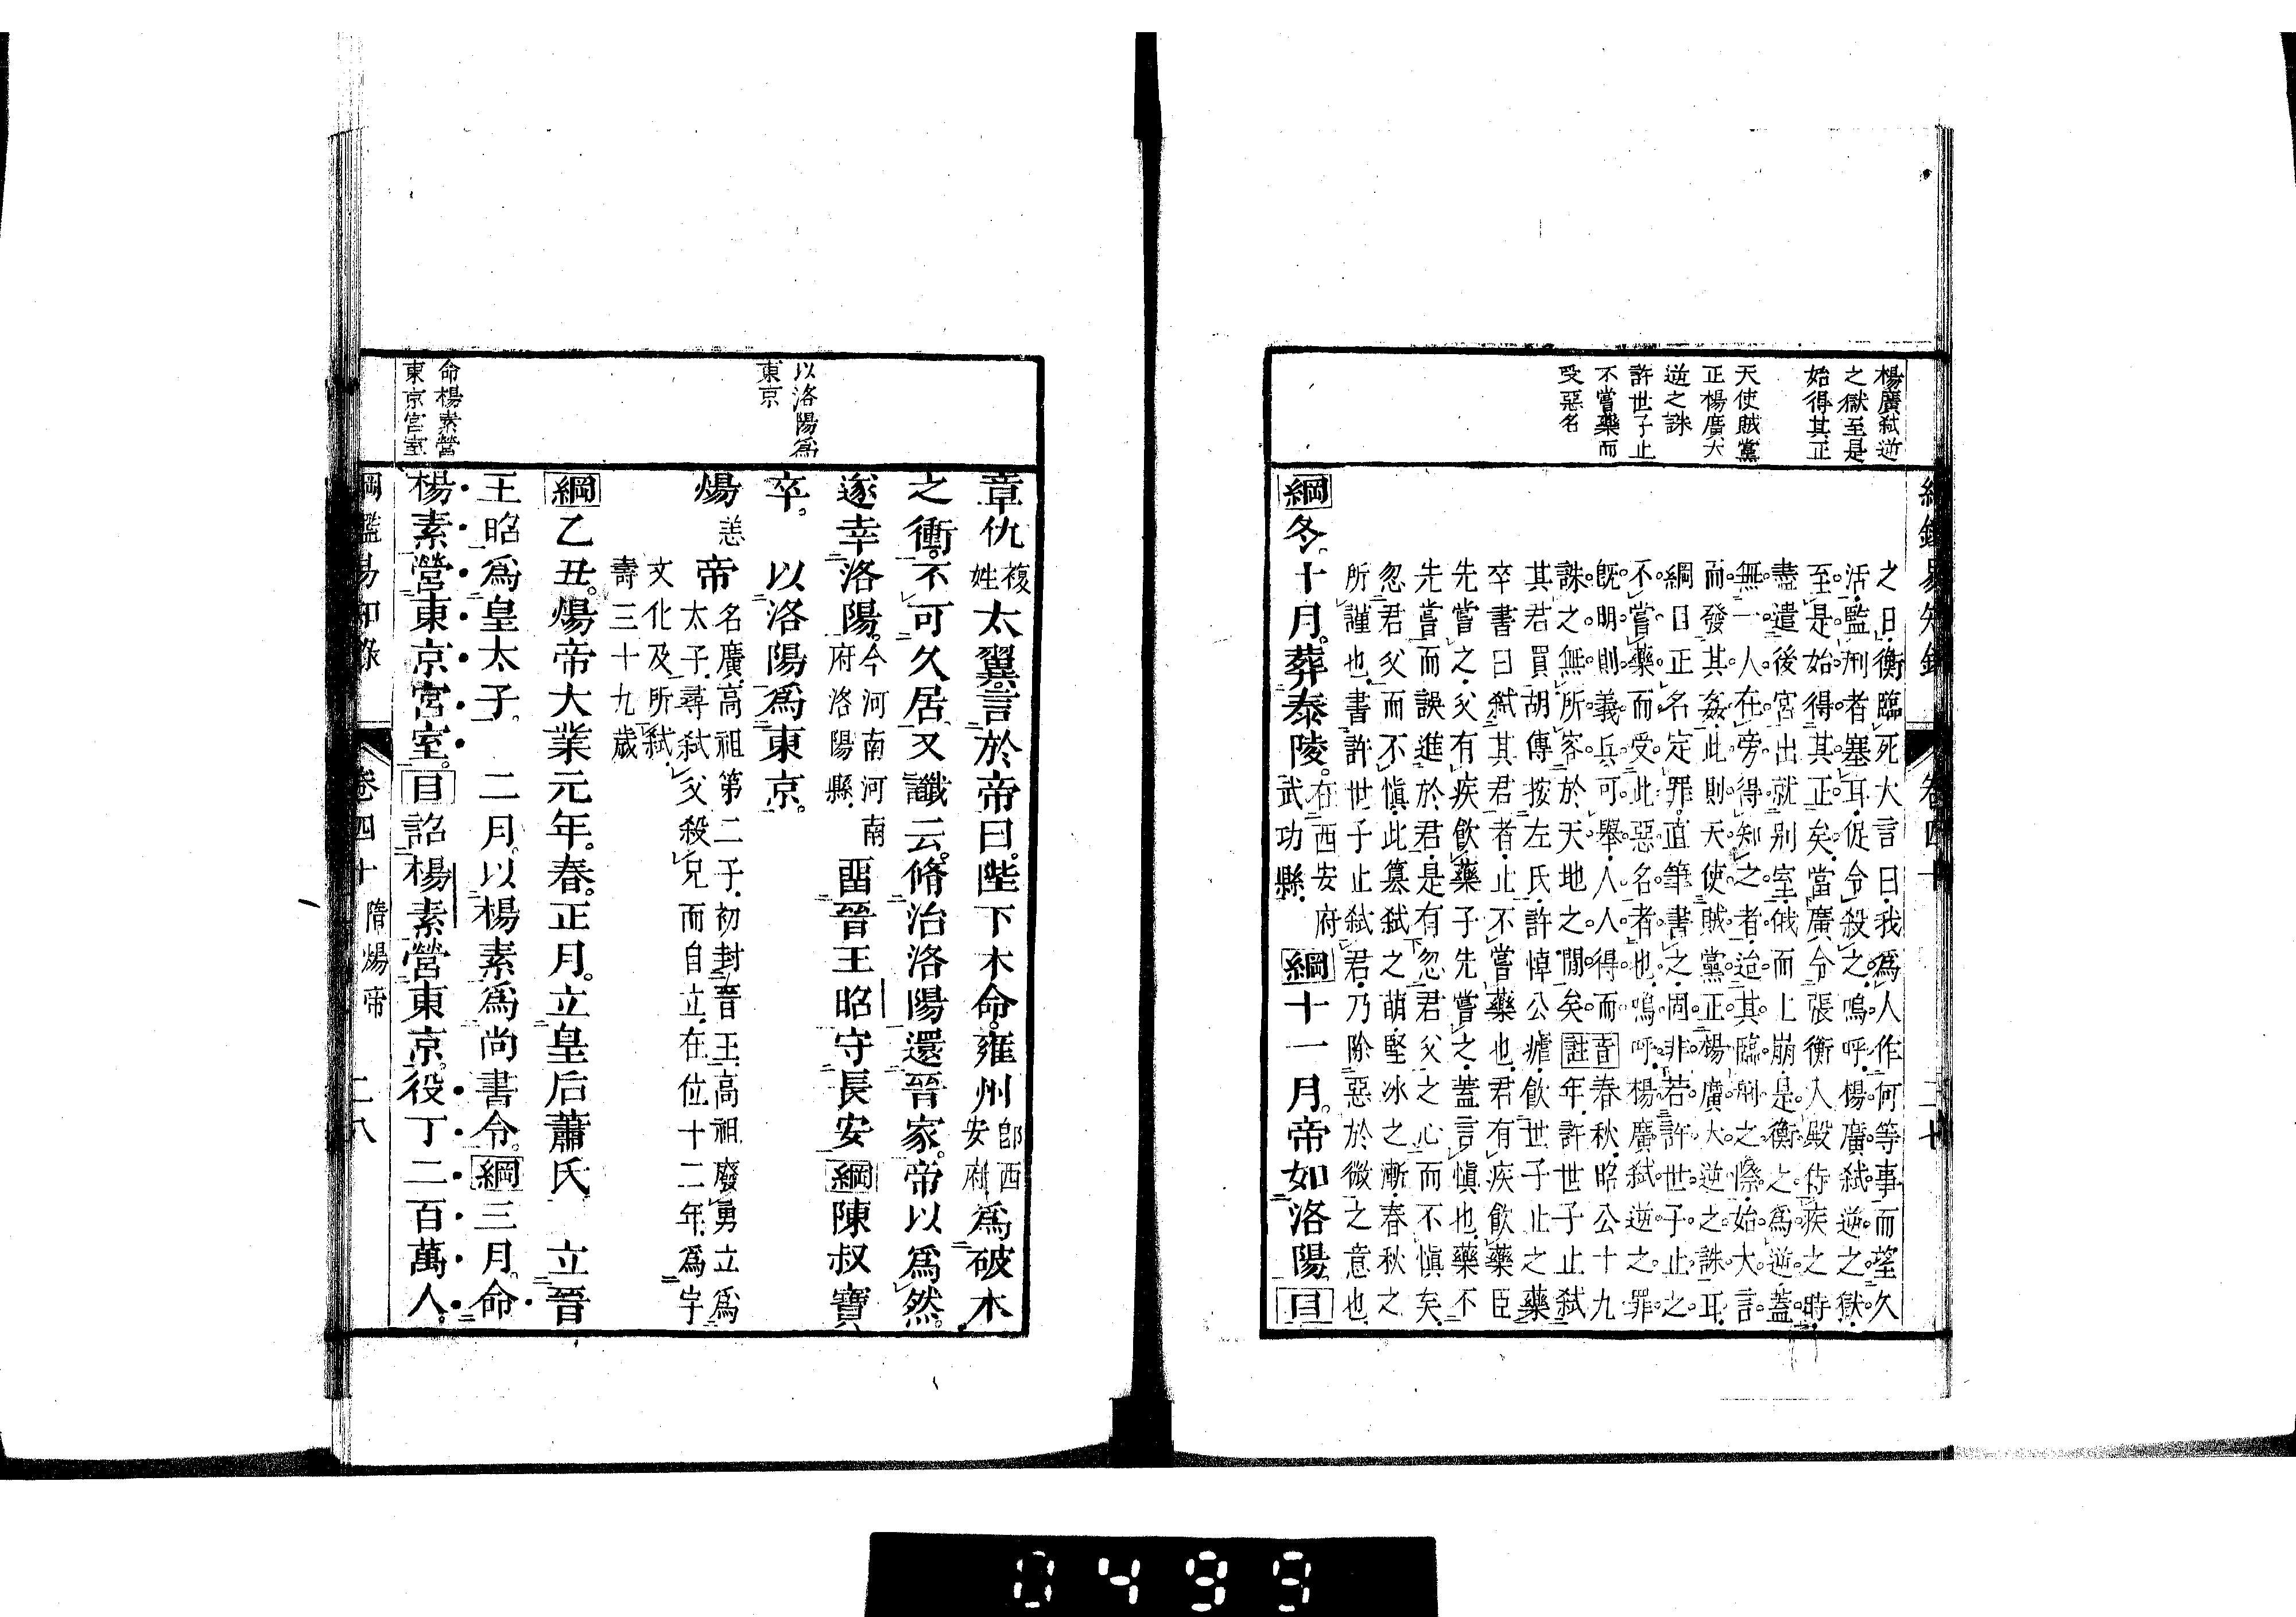 楊廣弑逆
之獄至是
始得其正
天使賊黨
正楊廣大
逆之誅
許世子止
不嘗藥而
受惡名
之日衡臨死大言曰我爲人作何等事而望久
活監刑者塞耳促令殺之嗚呼楊廣弑逆之獄
至是始得其正矣當廣令張衡入殿侍疾之時
盡遣後宮出就別室俄而上崩是衡之爲逆蓋
無一人在旁得知之者迨其臨刑之際始大言
而發其姦此則天使賊黨正楊廣大逆之誅耳
綱目正名定罪直筆書之固非若許世子止之
不嘗藥而受此惡名者也嗚呼楊廣弑逆之罪
旣明則義兵可舉人人得而音春秋昭公十九
誅之無所容於天地之閒矣註年許世子止弑
其君買胡傳按左氏許悼公瘧飮世子止之藥
卒書曰弑其君者止不嘗藥也君有疾飮藥臣
先嘗之父有疾飮藥子先嘗之蓋言愼也藥不
先嘗而誤進於君是有忽君父之心而不愼矣
忽君父而不愼此簒弑之萌堅冰之漸春秋之
所謹也書許世子止弑君乃除惡於微之意也
綱冬十月葬泰陵在西安府武功縣綱十一月帝如洛陽目
卷四十
二十七
以洛陽爲
東京
命楊素營
東京宮室
章仇複姓太翼言於帝曰陛下木命雍州卽西安府爲破木
之衝不可久居又讖云脩治洛陽還晉家帝以爲然
遂幸洛陽今河南河南府洛陽縣畱晉王昭守長安綱陳叔寶
卒 以洛陽爲東京
煬恙帝名廣高祖第二子初封晉王高祖廢勇立爲
太子尋弑父殺兄而自立在位十二年爲宇
文化及所弑
壽三十九歲
綱乙丑煬帝大業元年春正月立皇后蕭氏 立晉
王昭爲皇太子 二月以楊素爲尚書令綱三月命
楊素營東京宮室目詔楊素營東京役丁二百萬人
綱鑑易知錄 卷四十 隋煬帝 二八
0499